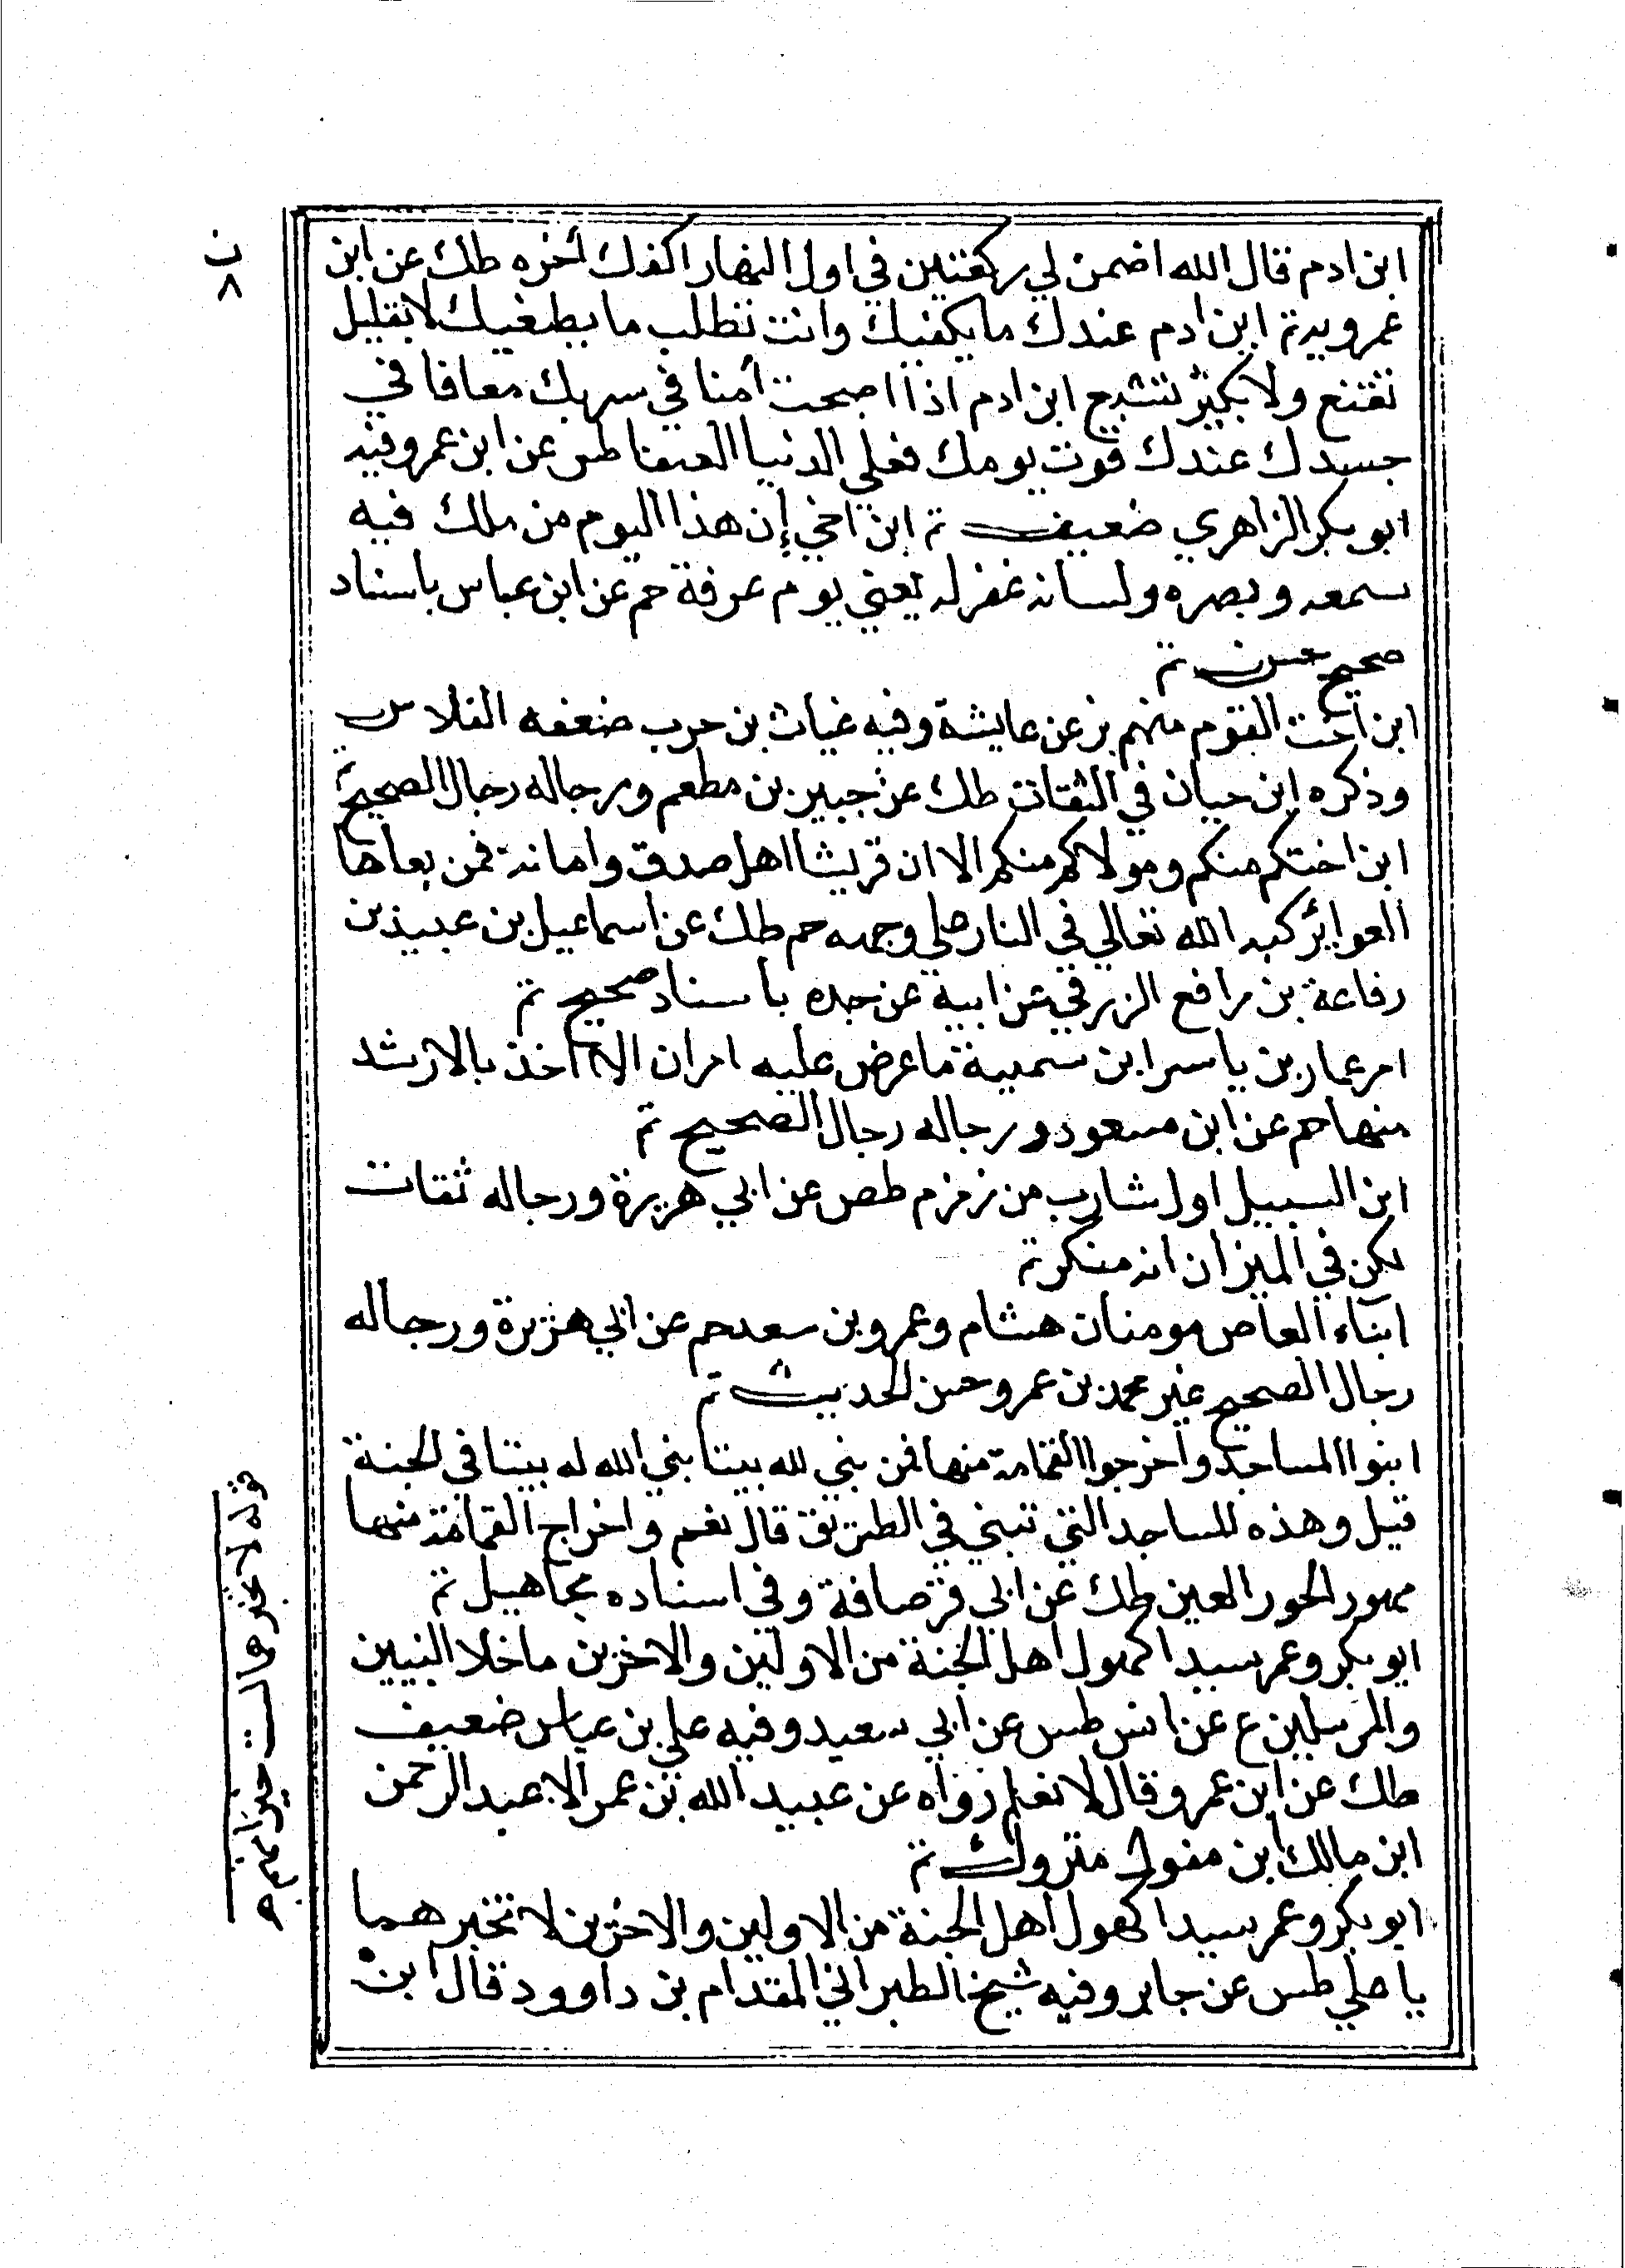 ابن ادم قال الله اضمن لي ركعتين في اول النهار اكفك اخره طك عن ابن
عمرو يه تم ابن ادم عندك ما يكفيك وانت تطلب ما يطغيك لا بقليل
تقنع ولا بكثير تشبع ابن ادم اذا اصبحت آمنا في سربك معافا في
جسدك عندك قوت يومك فعلي الدنيا العفا طس عن ابن عمر وفيه
ابو بكر الزاهري ضعيف تم ابن اخي إن هذا اليوم من ملك فيه
سمعه وبصره ولسانه غفر له يعني يوم عرفة حم عن ابن عباس باسناد
صحيح حسن تم
ابن اخت القوم منهم بز عن عايشة وفيه غياث بن حرب ضعفه الفلاس
وذكره ابن حبان في الثقات طك عن جبير بن مطعم ورجاله رجال الصحيح تم
ابن اختكم منكم ومولاكم منكم الا ان قريشا اهل صدق وامانة فمن بغاها
العواثر كبه الله تعالي في النار علي وجهه حم طك عن اسماعيل بن عبيد بن
رفاعة بن رافع الزرقي عن ابيه عن جده باسناد صحيح تم
امر عمار بن ياسر ابن سمية ما عرض عليه امران الا اخذ بالارشد
منهما حم عن ابن مسعود ورجاله رجال الصحيح تم
ابن السبيل اول شارب من زمزم طص عن ابي هريرة ورجاله ثقات
لكن في الميزان انه منكر تم
ابناء العاص مومنان هشام وعمرو بن سعد حم عن ابي هريرة ورجاله
رجال الصحيح غير محمد بن عمرو حسن الحديث تم
ابنوا المساجد واخرجوا القمامة منها فمن بني لله بيتا بني الله له بيتا في الجنة
قيل وهذه المساجد التي تبني في الطريق قال نعم واخراج القمامة منها
مهور الحور العين طك عن ابي قرصافة وفي اسناده مجاهيل تم
ابو بكر وعمر سيدا كهول اهل الجنة من الاولين والاخرين ما خلا النبيين
والمرسلين ع عن انس طس عن ابي سعيد وفيه علي بن عباس ضعيف
طك عن ابن عمر وقال لا نعلم رواه عن عبيد الله بن عمر الا عبد الرحمن
ابن مالك ابن مغول متروك تم
ابو بكر وعمر سيدا كهول اهل الجنة من الاولين والاخرين لا تخبرهما
يا علي طس عن جابر وفيه شيخ الطبراني المقدام بن داوود قال ابن